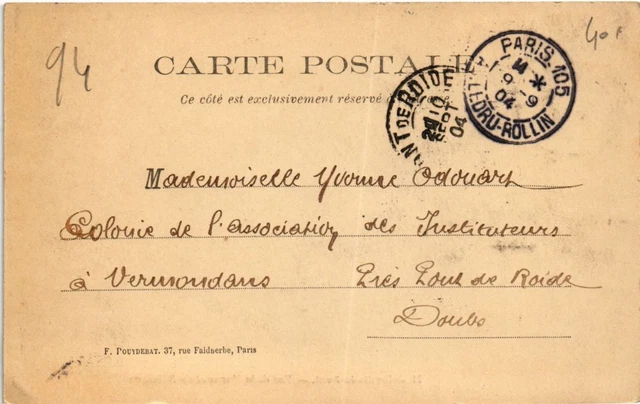 94
40f
CARTE POSTALE
Ce côté est exclusivement réservé
PARIS. 105
9 - 9
04
LEDRU-ROLLIN
PONT DE ROIDE
10
SEPT
04
Mademoiselle Yvonne Odouart
Colonie de l'association des Instituteurs
à Vermondans Près Pont de Roide
Doubs
F. POUYDEBAT. 37, rue Faidherbe, Paris